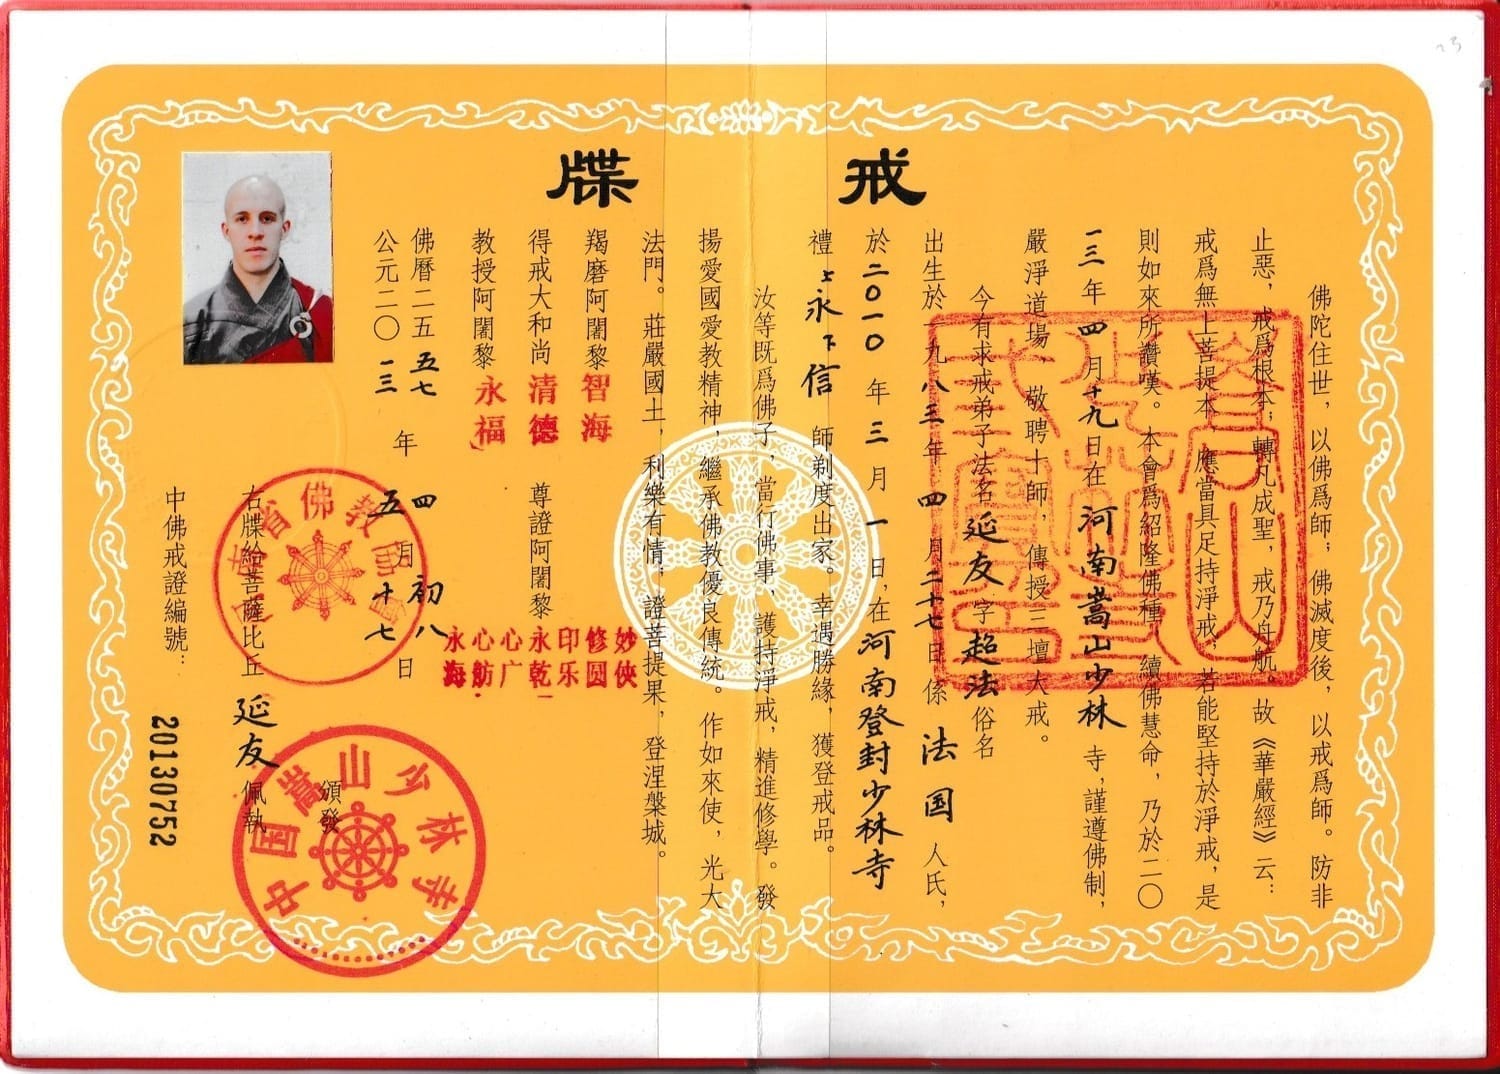 戒牒
佛陀住世，以佛爲師；佛滅度後，以戒爲師。防非
止惡，戒爲根本；轉凡成聖，戒乃舟航。故《華嚴經》云：
戒爲無上菩提本，應當具足持淨戒，若能堅持於淨戒，是
則如來所讚嘆。本會爲紹隆佛種，續佛慧命，乃於二〇
一三年四月十九日在河南嵩山少林寺，謹遵佛制，
嚴淨道場，敬聘十師，傳授三壇大戒。
今有求戒弟子法名延友字超法俗名
出生於一九八三年四月二十七日係法国人氏，
於二〇一〇年三月一日，在河南登封少林寺
禮上永下信師剃度出家。幸遇勝緣，獲登戒品。
汝等既爲佛子，當行佛事，護持淨戒，精進修學。發
揚愛國愛教精神，繼承佛教優良傳統。作如來使，光大
法門。莊嚴國土，利樂有情；證菩提果，登涅槃城。
羯磨阿闍黎智海
得戒大和尚清德
教授阿闍黎永福
尊證阿闍黎
妙侠
修圆
印乐
永乾
心广
心舫
永海
佛曆二五五七年四月初八日
公元二〇一三 五 十七
右牒給菩薩比丘延友佩執
頒發
中佛戒證編號：
20130752
中国嵩山少林寺